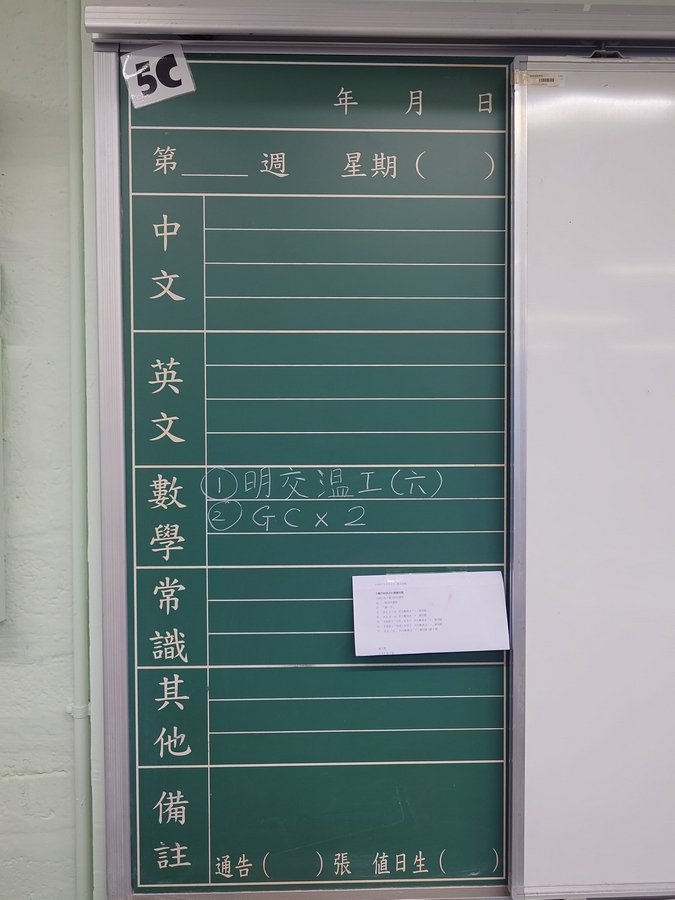 5C
年 月 日
第____週 星期( )
中文
英文
數學
① 明交溫工(六)
② GC x 2
常識
其他
備註
通告( )張 值日生( )